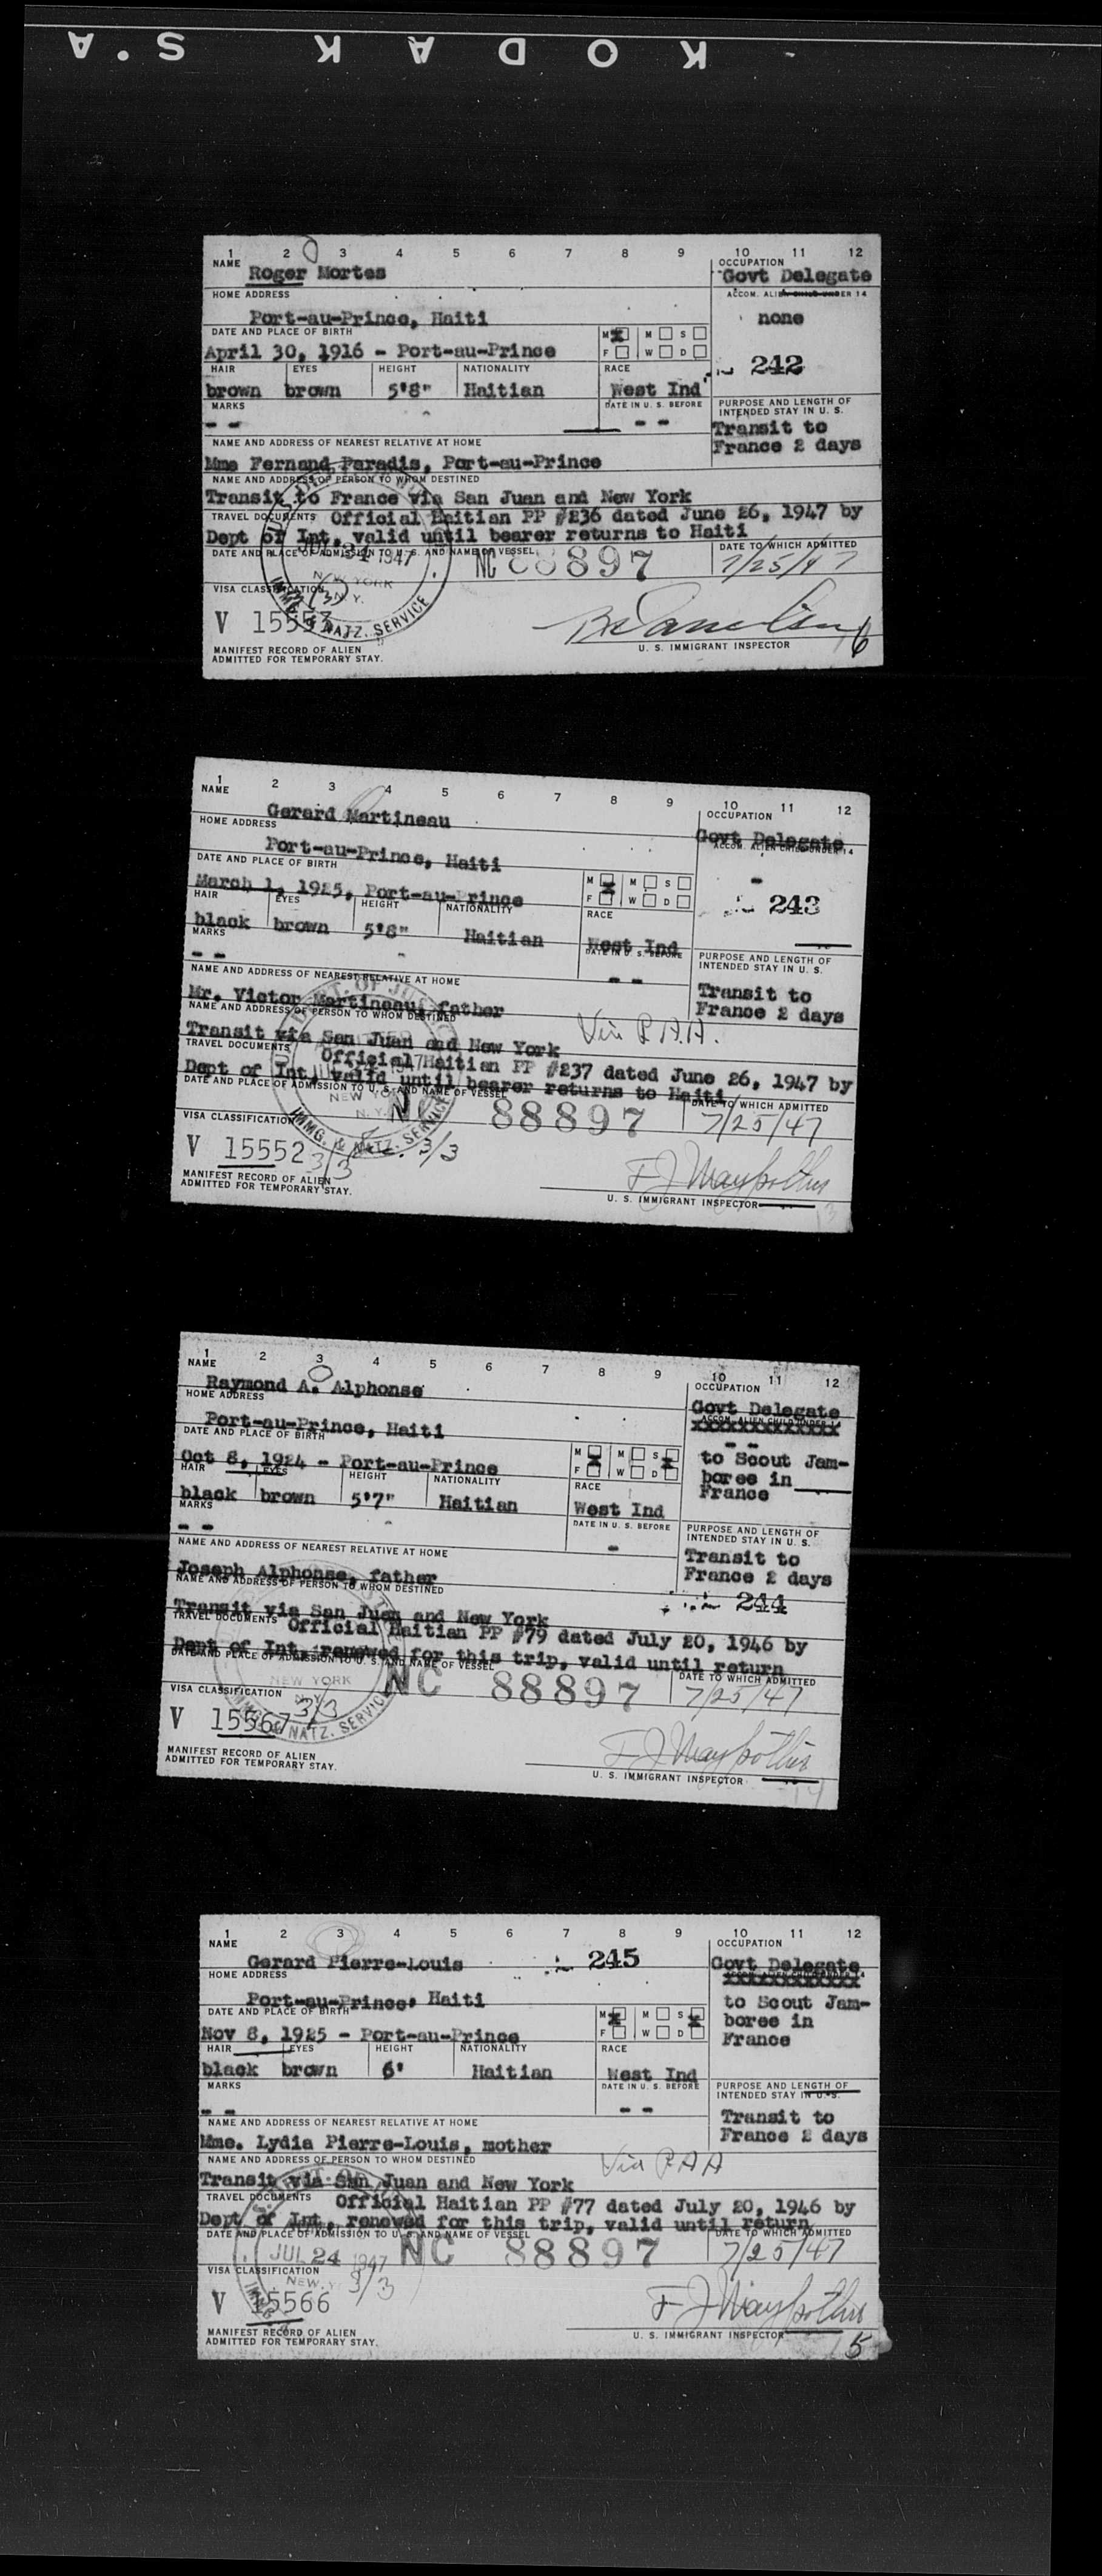 KODAK S.A
1 2 3 4 5 6 7 8 9 10 11 12
NAME Roger Mortes
OCCUPATION Govt Delegate
HOME ADDRESS
ACCOM. ALIEN CHILD UNDER 14
Port-au-Prince, Haiti
none
DATE AND PLACE OF BIRTH
M M S
April 30, 1916 - Port-au-Prince
F W D
242
HAIR EYES HEIGHT NATIONALITY RACE
brown brown 5'8" Haitian West Ind
MARKS
DATE IN U. S. BEFORE
PURPOSE AND LENGTH OF
INTENDED STAY IN U. S.
- -
- -
Transit to
France 2 days
NAME AND ADDRESS OF NEAREST RELATIVE AT HOME
Mme Fernand Paradis, Port-au-Prince
NAME AND ADDRESS OF PERSON TO WHOM DESTINED
Transit to France via San Juan and New York
TRAVEL DOCUMENTS Official Haitian PP #236 dated June 26, 1947 by
Dept of Int, valid until bearer returns to Haiti
DATE AND PLACE OF ADMISSION TO U. S. AND NAME OF VESSEL
NC 88897
DATE TO WHICH ADMITTED
7/25/47
VISA CLASSIFICATION
NEW YORK
N.Y.
IMMG. & NATZ. SERVICE
V 15553
U. S. IMMIGRANT INSPECTOR
6
MANIFEST RECORD OF ALIEN
ADMITTED FOR TEMPORARY STAY.
1 2 3 4 5 6 7 8 9 10 11 12
NAME Gerard Martineau
OCCUPATION
Govt Delegate
HOME ADDRESS
ACCOM. ALIEN CHILD UNDER 14
Port-au-Prince, Haiti
-
DATE AND PLACE OF BIRTH
M M S
March 1, 1925, Port-au-Prince
F W D
243
HAIR EYES HEIGHT NATIONALITY RACE
black brown 5'8" Haitian West Ind
MARKS
DATE IN U. S. BEFORE
PURPOSE AND LENGTH OF
INTENDED STAY IN U. S.
- -
- -
Transit to
France 2 days
NAME AND ADDRESS OF NEAREST RELATIVE AT HOME
Mr. Victor Martineau, father
NAME AND ADDRESS OF PERSON TO WHOM DESTINED
Transit via San Juan and New York
Via P.A.A.
TRAVEL DOCUMENTS Official Haitian PP #237 dated June 26, 1947 by
Dept of Int, valid until bearer returns to Haiti
DATE AND PLACE OF ADMISSION TO U. S. AND NAME OF VESSEL
NC 88897
DATE TO WHICH ADMITTED
7/25/47
VISA CLASSIFICATION
NEW YORK
N.Y.
IMMG. & NATZ. SERVICE
V 15552
3/3
3/3
U. S. IMMIGRANT INSPECTOR
MANIFEST RECORD OF ALIEN
ADMITTED FOR TEMPORARY STAY.
1 2 3 4 5 6 7 8 9 10 11 12
NAME Raymond A. Alphonse
OCCUPATION
Govt Delegate
HOME ADDRESS
ACCOM. ALIEN CHILD UNDER 14
Port-au-Prince, Haiti
- -
to Scout Jam-
boree in
France
DATE AND PLACE OF BIRTH
M M S
Oct 8, 1924 - Port-au-Prince
F W D
HAIR EYES HEIGHT NATIONALITY RACE
black brown 5'7" Haitian West Ind
MARKS
DATE IN U. S. BEFORE
PURPOSE AND LENGTH OF
INTENDED STAY IN U. S.
- -
-
Transit to
France 2 days
NAME AND ADDRESS OF NEAREST RELATIVE AT HOME
Joseph Alphonse, father
244
NAME AND ADDRESS OF PERSON TO WHOM DESTINED
Transit via San Juan and New York
TRAVEL DOCUMENTS Official Haitian PP #79 dated July 20, 1946 by
Dept of Int, renewed for this trip, valid until return
DATE AND PLACE OF ADMISSION TO U. S. AND NAME OF VESSEL
NC 88897
DATE TO WHICH ADMITTED
7/25/47
VISA CLASSIFICATION
NEW YORK
N.Y.
3/3
IMMG. & NATZ. SERVICE
V 15567
U. S. IMMIGRANT INSPECTOR
MANIFEST RECORD OF ALIEN
ADMITTED FOR TEMPORARY STAY.
1 2 3 4 5 6 7 8 9 10 11 12
NAME Gerard Pierre-Louis
245
OCCUPATION
Govt Delegate
HOME ADDRESS
Port-au-Prince, Haiti
to Scout Jam-
boree in
France
DATE AND PLACE OF BIRTH
M M S
Nov 8, 1925 - Port-au-Prince
F W D
HAIR EYES HEIGHT NATIONALITY RACE
black brown 6' Haitian West Ind
MARKS
DATE IN U. S. BEFORE
PURPOSE AND LENGTH OF
INTENDED STAY IN U. S.
- -
- -
Transit to
France 2 days
NAME AND ADDRESS OF NEAREST RELATIVE AT HOME
Mme. Lydia Pierre-Louis, mother
NAME AND ADDRESS OF PERSON TO WHOM DESTINED
Via PAA
Transit via San Juan and New York
TRAVEL DOCUMENTS Official Haitian PP #77 dated July 20, 1946 by
Dept of Int, renewed for this trip, valid until return
DATE AND PLACE OF ADMISSION TO U. S. AND NAME OF VESSEL
JUL 24 1947
NC 88897
DATE TO WHICH ADMITTED
7/25/47
VISA CLASSIFICATION
3/3
V 15566
U. S. IMMIGRANT INSPECTOR
5
MANIFEST RECORD OF ALIEN
ADMITTED FOR TEMPORARY STAY.